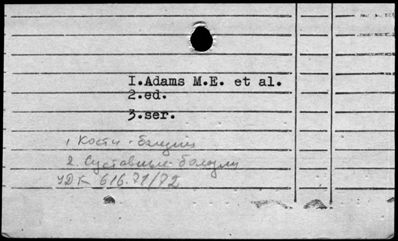 I.Adams M.E. et al.
2.ed.
3.ser.
1. Кости - болезни
2. Суставные болезни
УДК 616.71/72